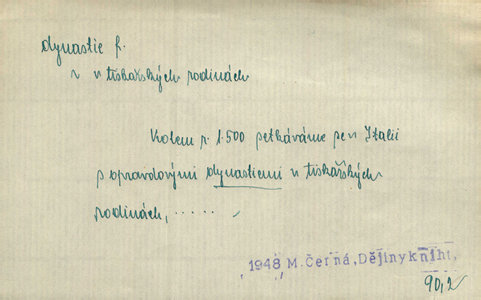 dynastie f.
v tiskařských rodinách
Kolem r. 1500 potkáváme se v Italii
s opravdovými dynastiemi v tiskařských
rodinách, .....
1948 M. Černá, Dějiny kniht,
90,2